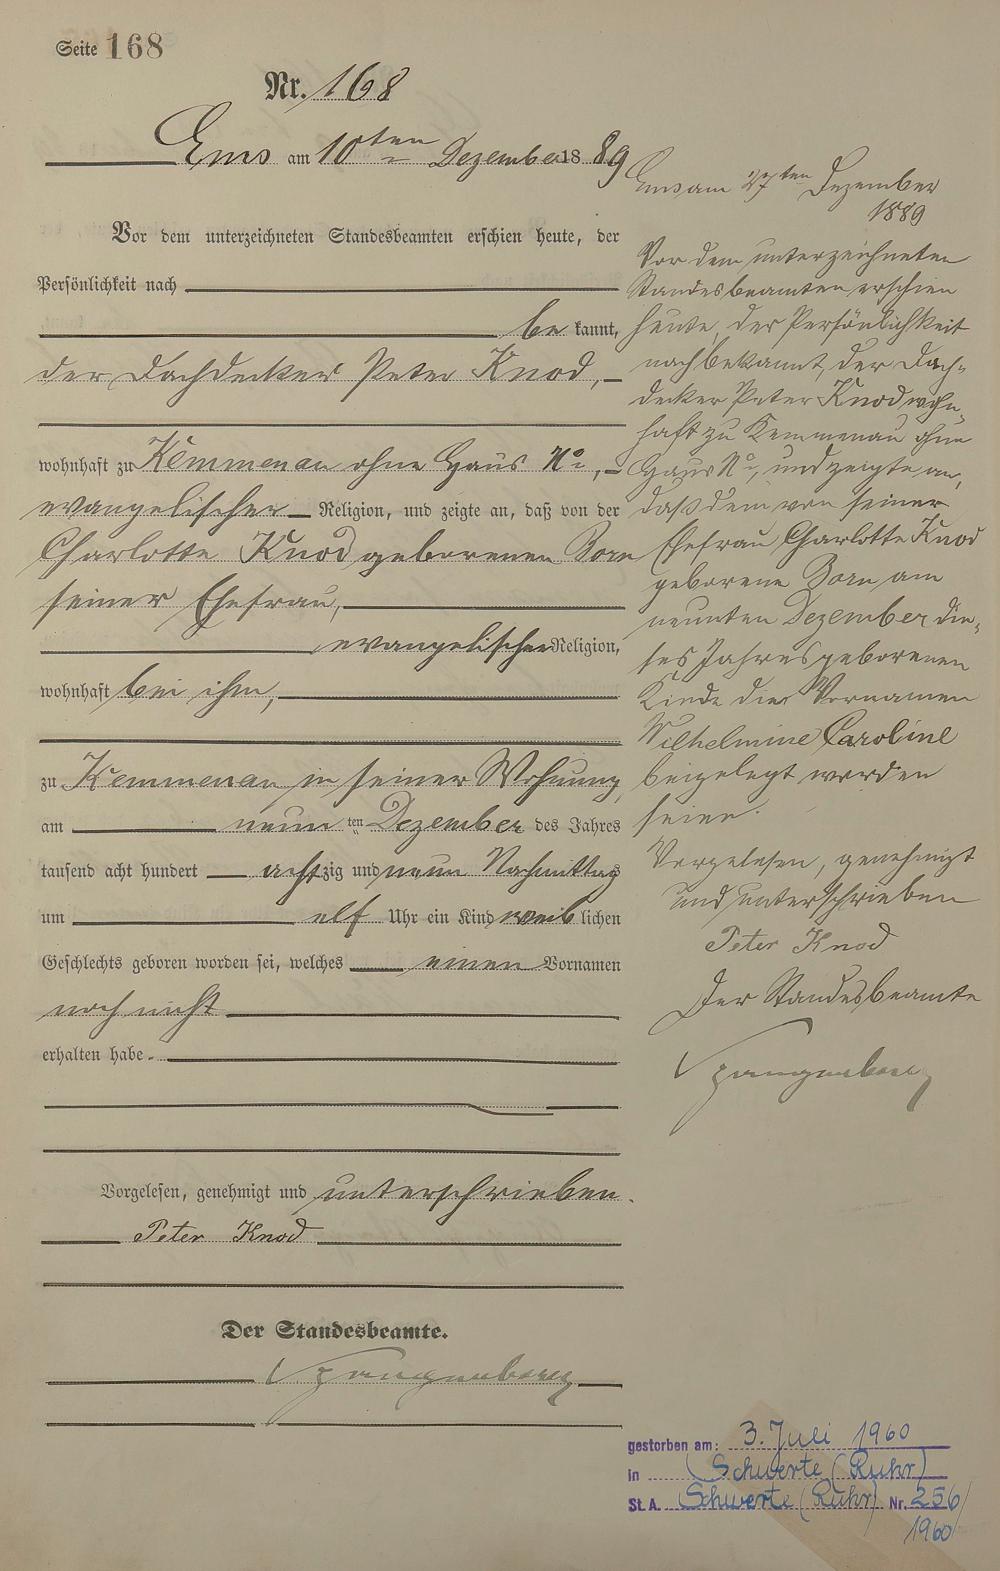 Seite 168
Nr. 168
Ems am 10ten Dezember 1889
Vor dem unterzeichneten Standesbeamten erschien heute, der
Persönlichkeit nach
be kannt,
der Dachdecker Peter Knod,
wohnhaft zu Kemmenau ohne Haus No,
evangelischer Religion, und zeigte an, daß von der
Charlotte Knod geborenen Born
seiner Ehefrau,
evangelischer Religion,
wohnhaft bei ihm,
zu Kemmenau in seiner Wohnung
am neun ten Dezember des Jahres
tausend acht hundert achtzig und neun Nachmittag
um elf Uhr ein Kind weiblichen
Geschlechts geboren worden sei, welches einen Vornamen
noch nicht
erhalten habe.
Vorgelesen, genehmigt und unterschrieben.
Peter Knod
Der Standesbeamte.
Ems am 27ten Dezember
1889
Vor dem unterzeichneten
Standesbeamten erschien
heute, der Persönlichkeit
nach bekannt, der Dach-
decker Peter Knod wohn-
haft zu Kemmenau ohne
Haus No, und zeigte an,
daß dem von seiner
Ehefrau Charlotte Knod
geborene Born am
neunten Dezember die-
ses Jahres geborenen
Kinde die Vornamen
Wilhelmine Caroline
beigelegt worden
seien.
Vorgelesen, genehmigt
und unterschrieben
Peter Knod
Der Standesbeamte
gestorben am: 3. Juli 1960
in Schwerte (Ruhr)
St. A. Schwerte (Ruhr) Nr. 256/
1960